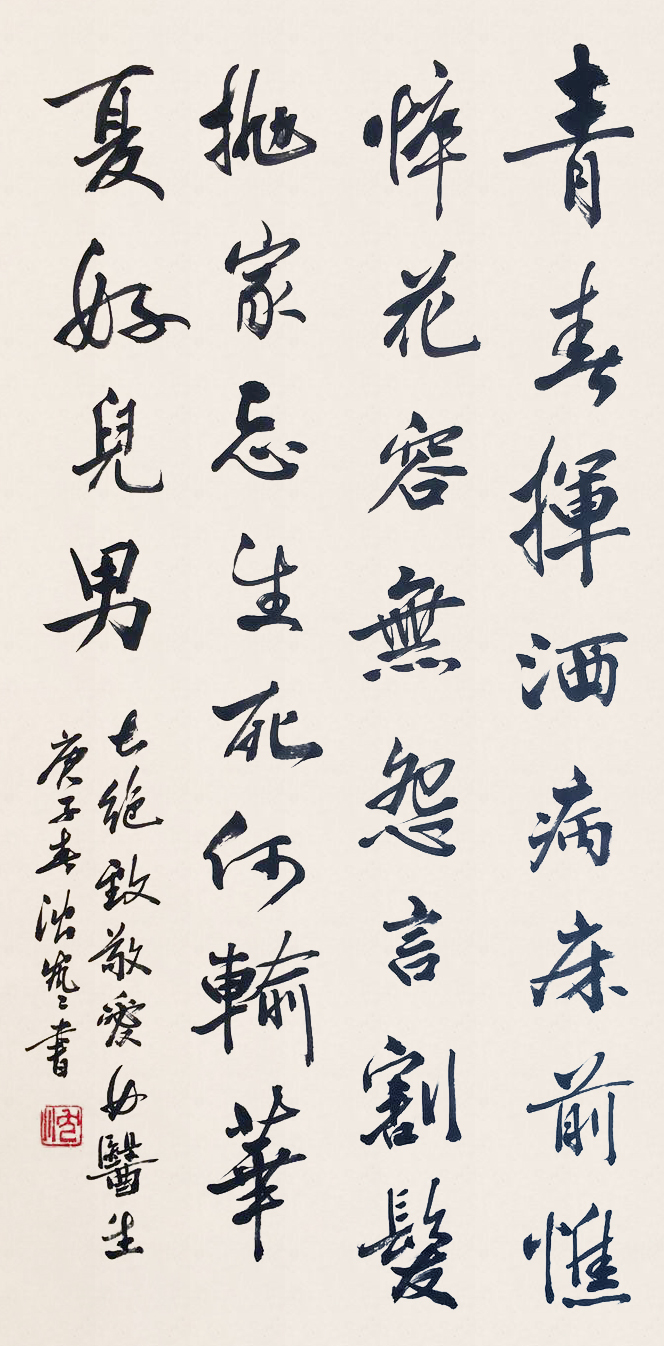 青春揮洒病床前憔
悴花容無怨言割髮
抛家忘生死何輸華
夏好兒男
七絶致敬愛女醫生
庚子春沈嵐書